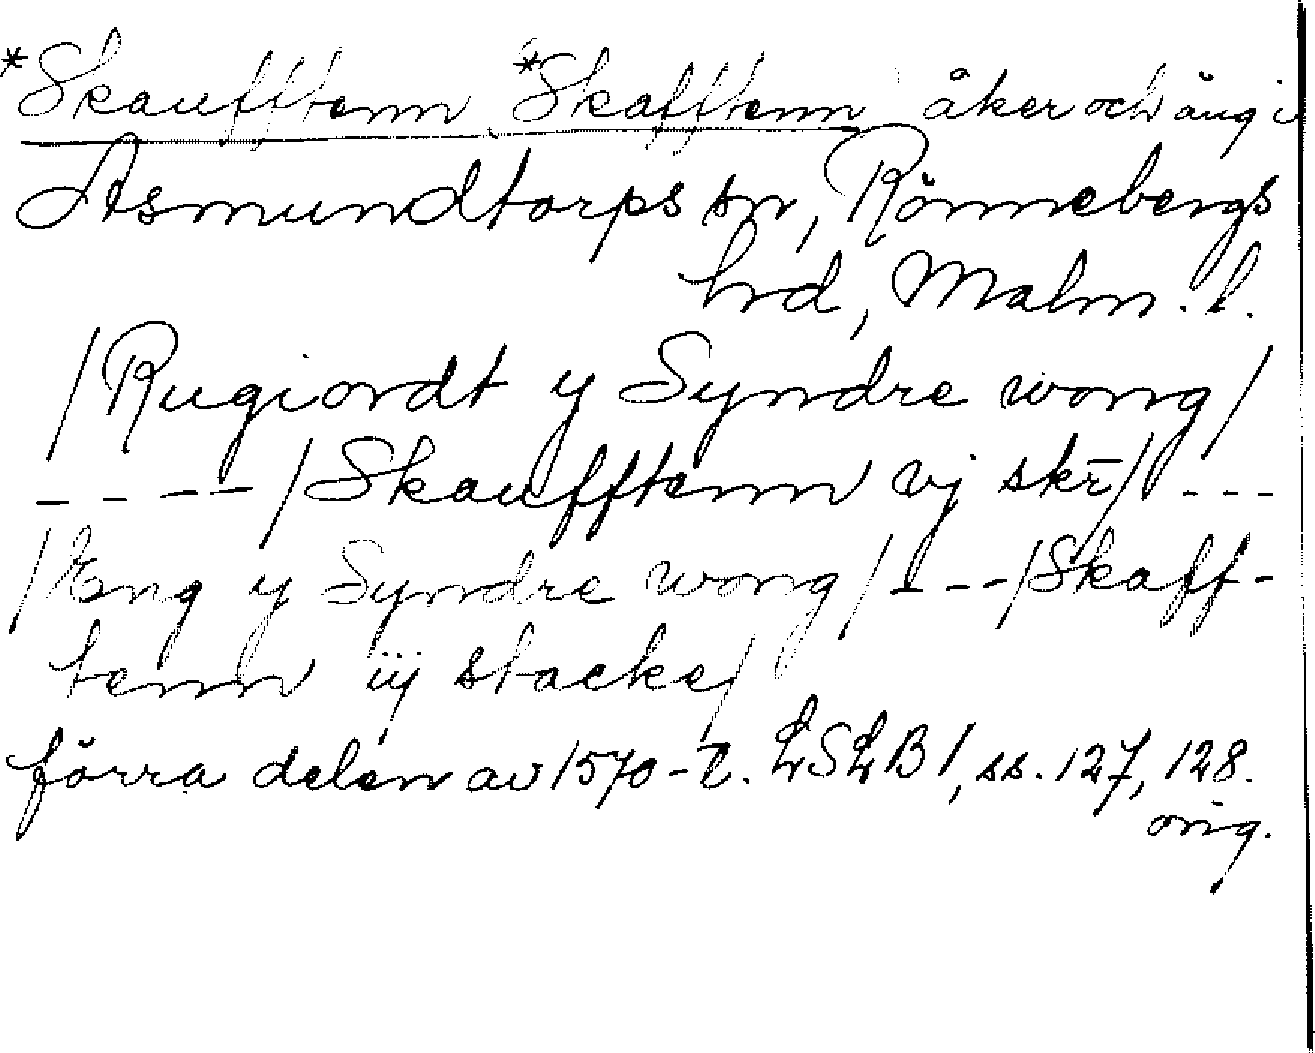 *Skaufftenn *Skafftenn åker och äng i
Asmundtorps sn, Rönnebergs
hrd, Malm. l.
/Rugiordt y Syndre wong/
---- /Skaufftenn vj skr̄/ ---
/Eng y Syndre wong/ --- /Skaff-
tenn iij stacke/
förra delen av 1570-t. LSLB 1, ss. 127, 128.
orig.